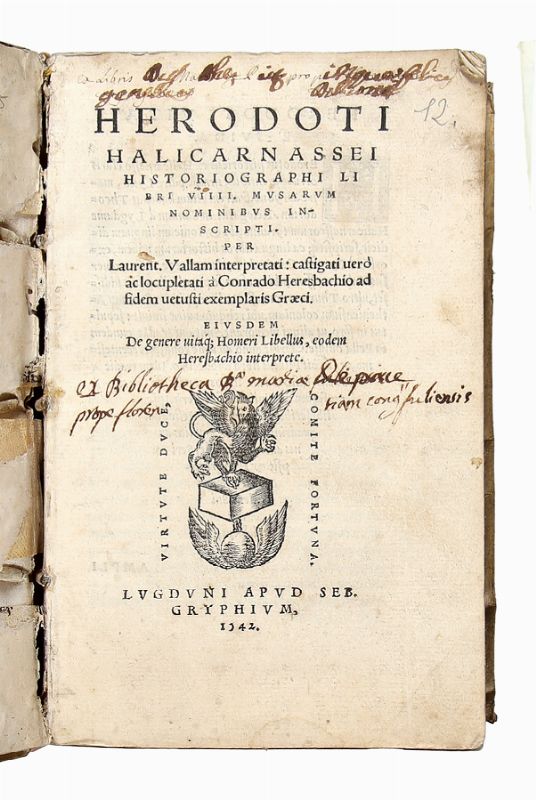 ex libris
12.
HERODOTI
HALICARNASSEI
HISTORIOGRAPHI LI
BRI VIIII. MVSARVM
NOMINIBVS IN-
SCRIPTI.
PER
Laurent. Vallam interpretati: castigati uero
ac locupletati à Conrado Heresbachio ad
fidem uetusti exemplaris Græci.
EIVSDEM
De genere uitáq; Homeri Libellus, eodem
Heresbachio interprete.
ex Bibliotheca
prope floren tiam
VIRTVTE DVCE,
COMITE FORTVNA.
LVGDVNI APVD SEB.
GRYPHIVM,
1542.